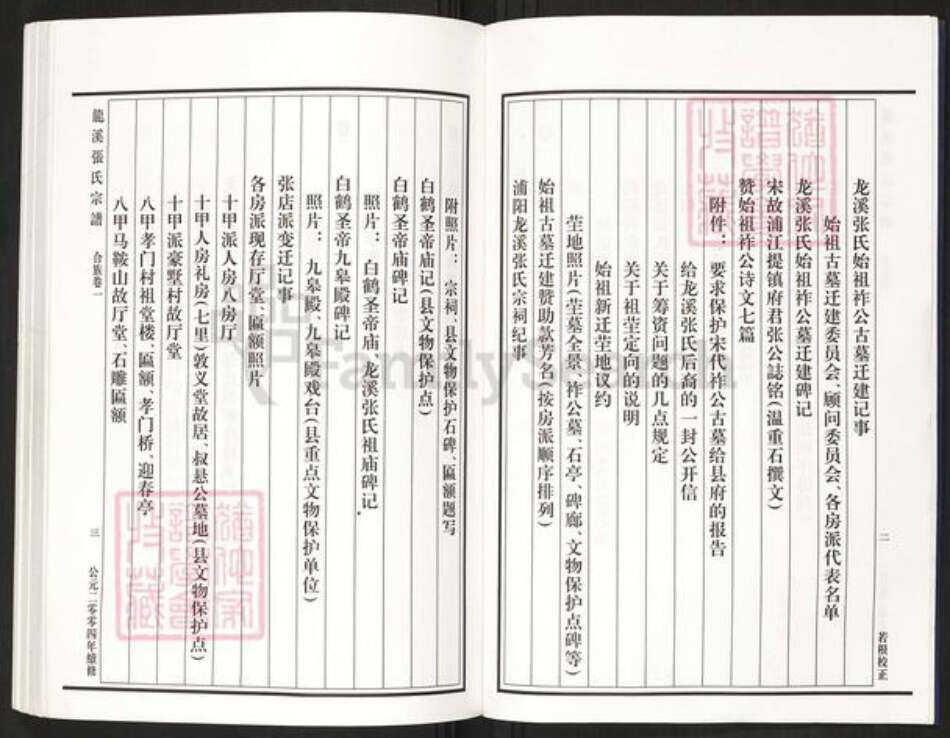 龙溪张氏始祖祚公古墓迁建记事
始祖古墓迁建委员会、顾问委员会、各房派代表名单
龙溪张氏始祖祚公墓迁建碑记
宋故浦江提镇府君张公誌铭(温重石撰文)
赞始祖祚公诗文七篇
附件：要求保护宋代祚公古墓给县府的报告
给龙溪张氏后裔的一封公开信
关于筹资问题的几点规定
关于祖茔定向的说明
始祖新迁茔地议约
茔地照片(茔墓全景、祚公墓、石亭、碑廊、文物保护点碑等)
始祖古墓迁建赞助款芳名(按房派顺序排列)
浦阳龙溪张氏宗祠纪事
二
若根校正
附照片：宗祠、县文物保护石碑、匾额题写
白鹤圣帝庙记(县文物保护点)
白鹤圣帝庙碑记
照片：白鹤圣帝庙、龙溪张氏祖庙碑记
白鹤圣帝九皋殿碑记
照片：九皋殿、九皋殿戏台(县重点文物保护单位)
张店派变迁记事
各房派现存厅堂、匾额照片
十甲派人房八房厅
十甲人房礼房(七里)敦义堂故居、叔悬公墓地(县文物保护点)
十甲派豪墅村故厅堂
八甲孝门村祖堂楼、匾额、孝门桥、迎春亭
八甲马鞍山故厅堂、石雕匾额
龍溪張氏宗譜 合族卷一
三
公元二零零四年續修